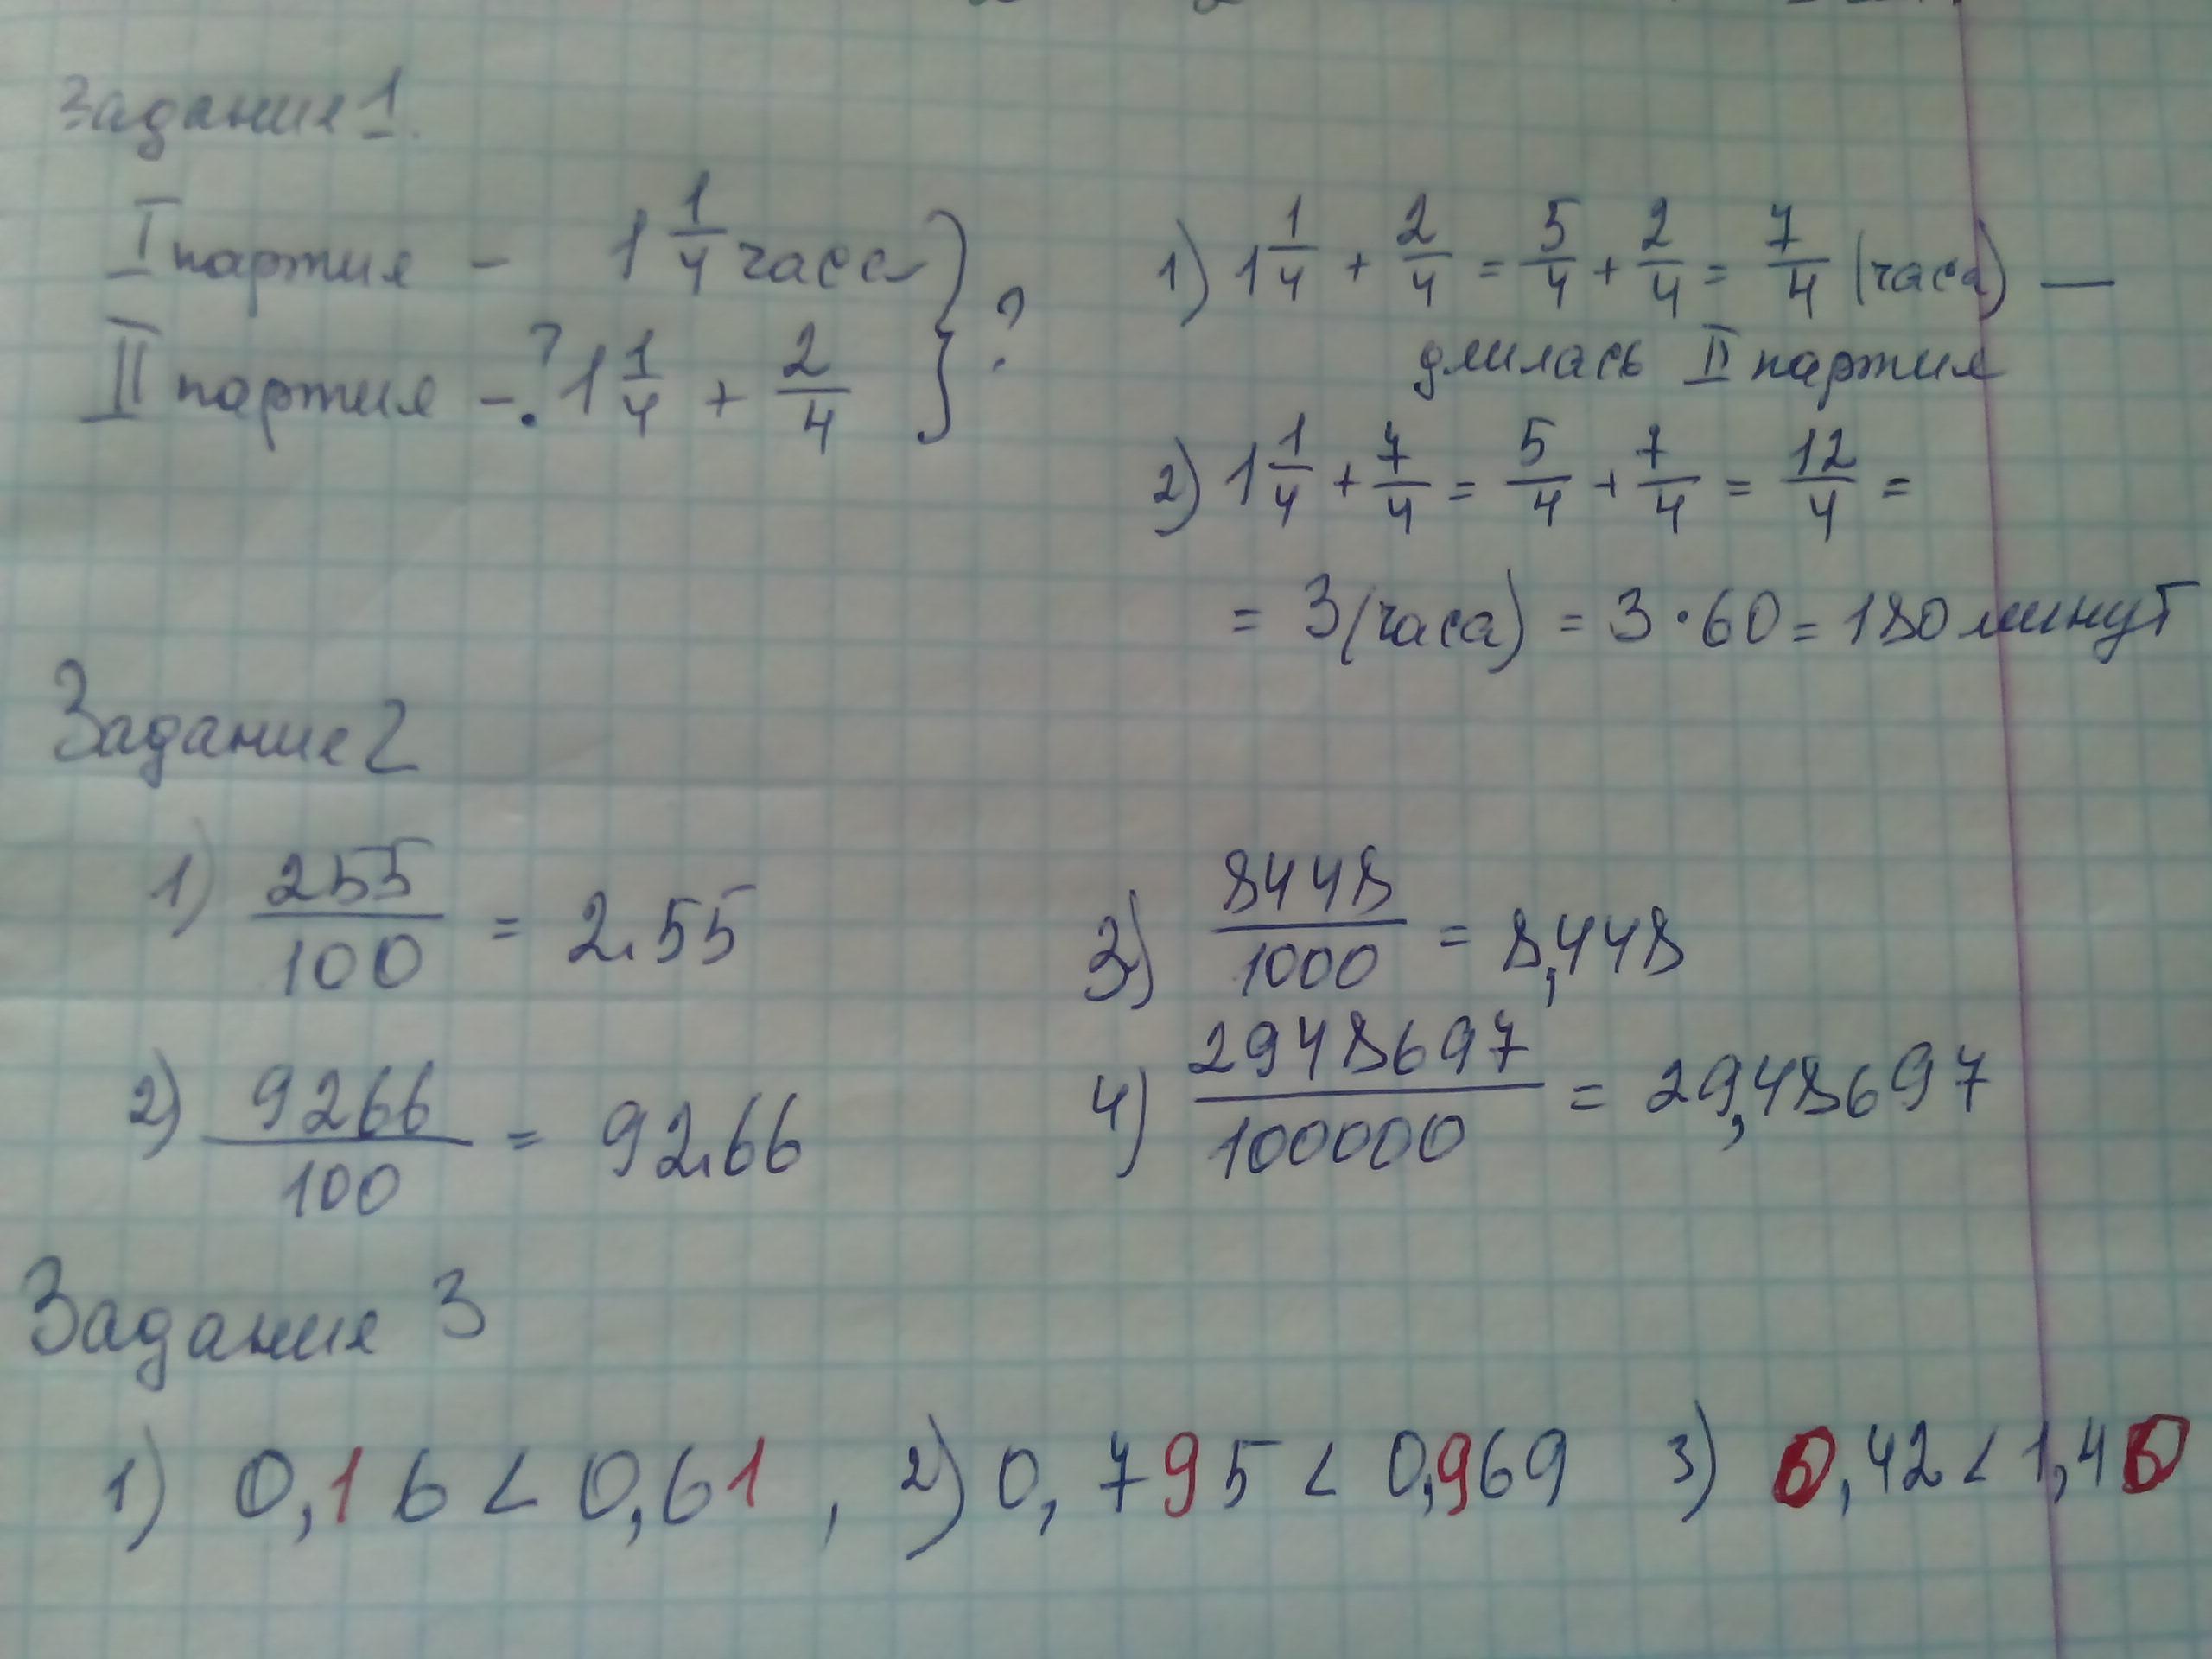 Задание 1.
I партия - 1 1/4 часа } ?
II партия - ? 1 1/4 + 2/4
1) 1 1/4 + 2/4 = 5/4 + 2/4 = 7/4 (часа) —
длилась II партия
2) 1 1/4 + 7/4 = 5/4 + 7/4 = 12/4 =
= 3 (часа) = 3 · 60 = 180 минут
Задание 2
1) 255/100 = 2.55
2) 9266/100 = 92.66
3) 8448/1000 = 8,448
4) 2948697/100000 = 29,48697
Задание 3
1) 0,16 < 0,61 , 2) 0,795 < 0,969 3) 0,42 < 1,40